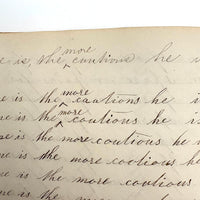 e is the more cautious he i
e is the more cautions he i
e is the more coutious he is
e is the more coutious he is
e is the more cootious he is
ne is the more coutious
ne is the more coutious